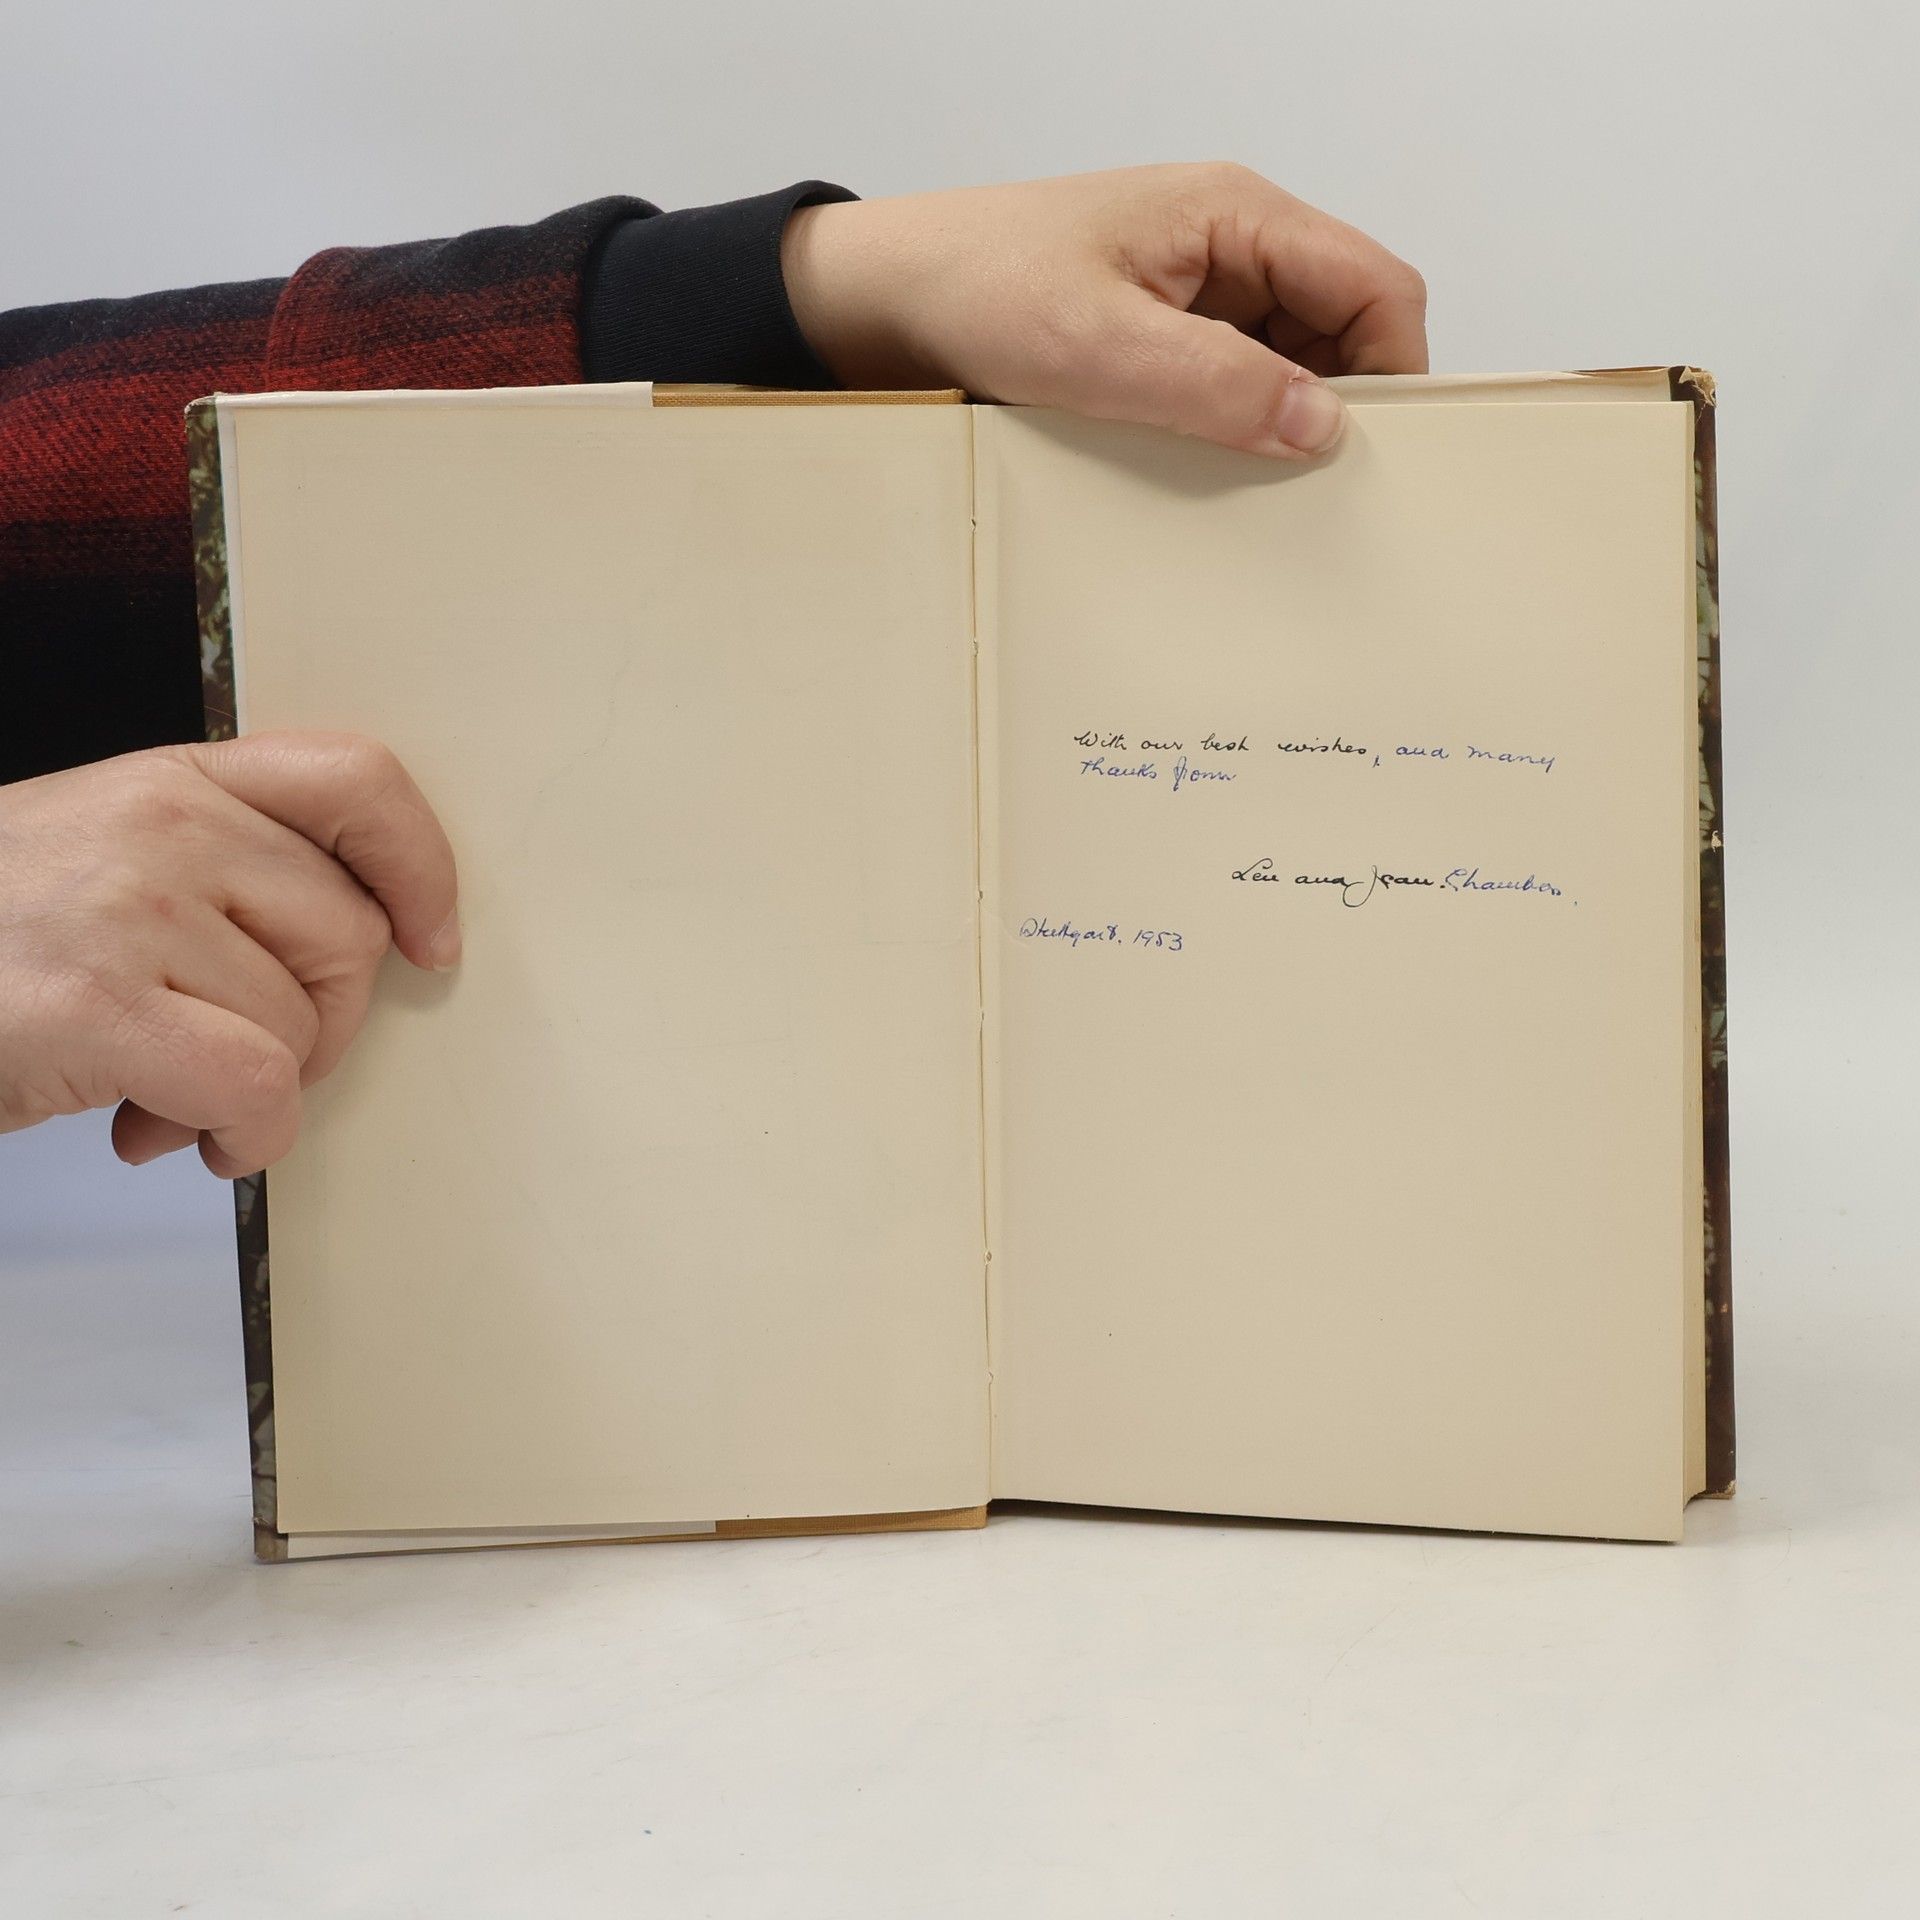 With our best wishes, and many
thanks from
Len and Jean Chambers.
Stuttgart. 1953